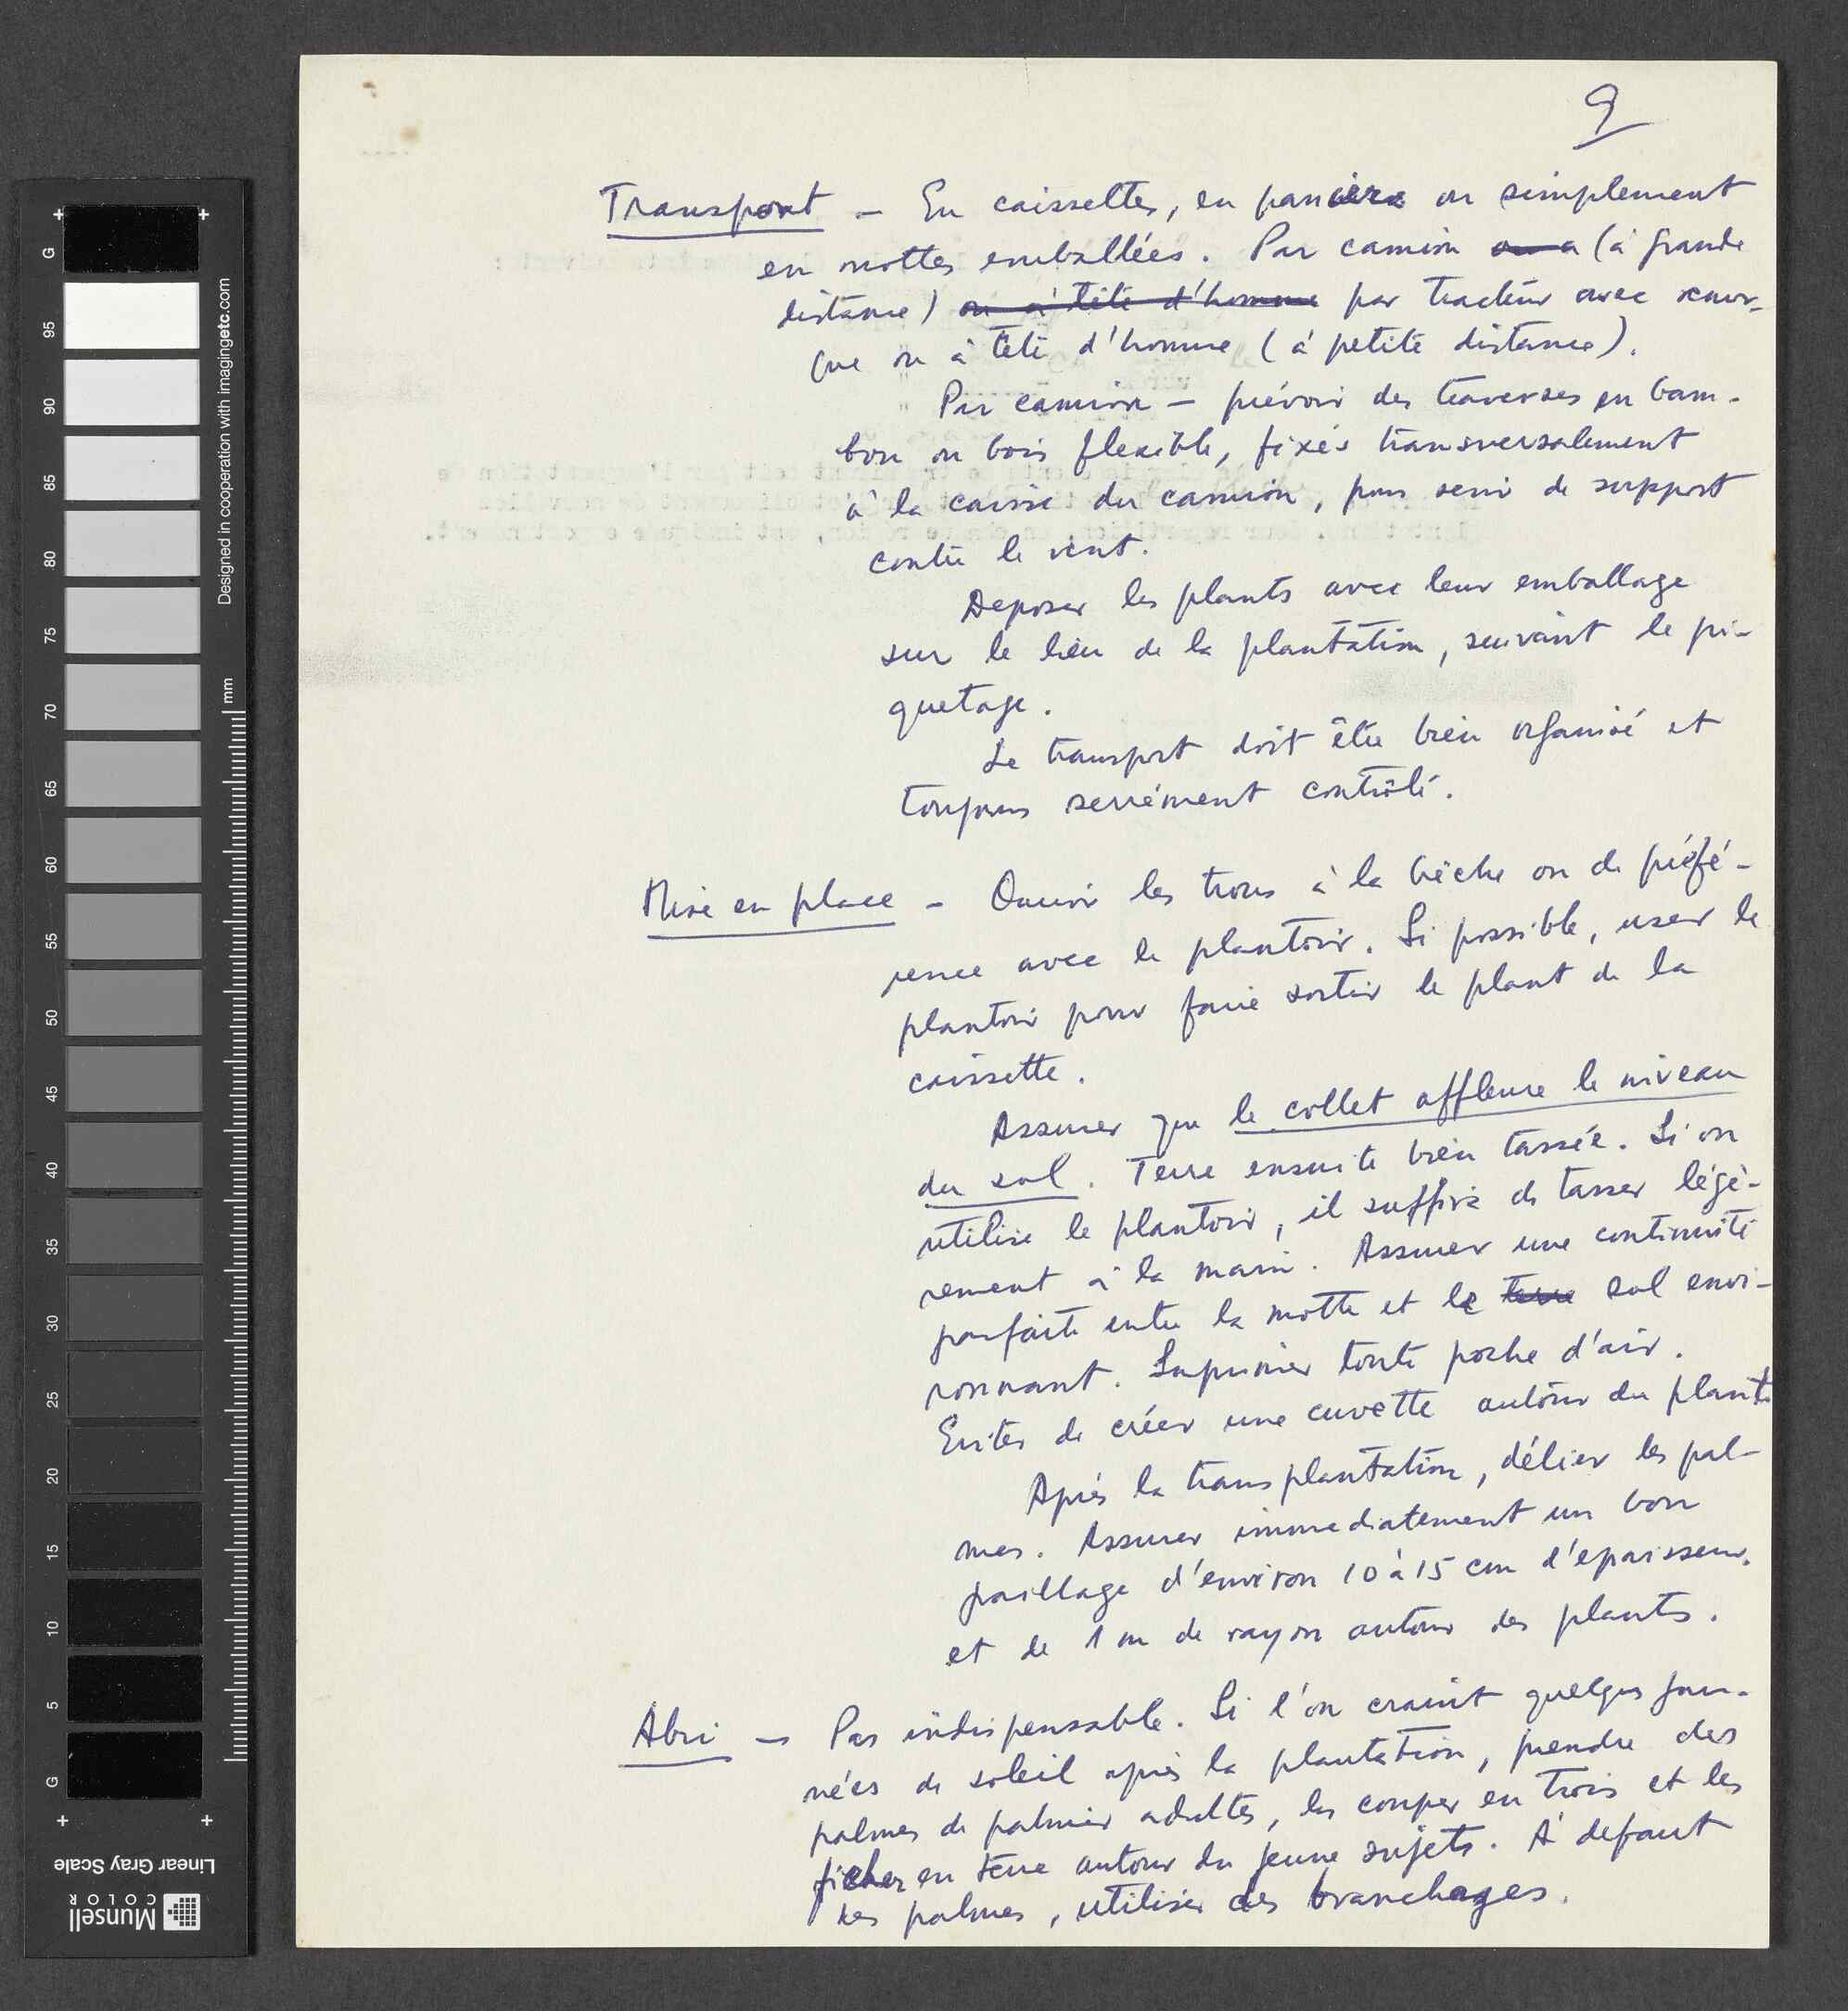 9
Transport — En caissettes, en paniers ou simplement
en mottes emballées. Par camion ou a (à grande
distance) ou à tête d'homme par tracteur avec remor-
que ou à tête d'homme (à petite distance).
Par camion — prévoir des traverses en bam-
bou ou bois flexible, fixés transversalement
à la caisse du camion, pour servir de support
contre le vent.
Deposer les plants avec leur emballage
sur le lieu de la plantation, suivant le pi-
quetage.
Le transport doit être bien organisé et
toujours serrément contrôlé.
Mise en place — Ouvrir les trous à la bêche ou de préfé-
rence avec le plantoir. Si possible, user le
plantoir pour faire sortir le plant de la
caissette.
Assurer que le collet affleure le niveau
du sol. Terre ensuite bien tassée. Si on
utilise le plantoir, il suffira de tasser légè-
rement à la main. Assurer une continuité
parfaite entre la motte et le terre sol envi-
ronnant. Suprimer toute poche d'air.
Eviter de créer une cuvette autour du plant.
Après la transplantation, délier les pal-
mes. Assurer immediatement un bon
paillage d'environ 10 à 15 cm d'epaisseur.
et de 1 m de rayon autour des plants.
Abri — Pas indispensable. Si l'on craint quelques jour-
nées de soleil après la plantation, prendre des
palmes de palmier adultes, les couper en trois et les
ficher en terre autour du jeune sujets. A défaut
des palmes, utiliser des branchages.
G
95
90
85
80
75
70
65
60
55
50
45
40
35
30
25
20
15
10
5
G
mm
Designed in cooperation with imagingetc.com
Linear Gray Scale
Munsell
COLOR